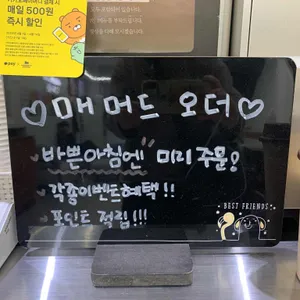 매일 500원
즉시 할인
♡매머드 오더♡
바쁜아침엔 미리주문!
각종이벤트혜택!!
포인트 적립!!!
BEST FRIENDS